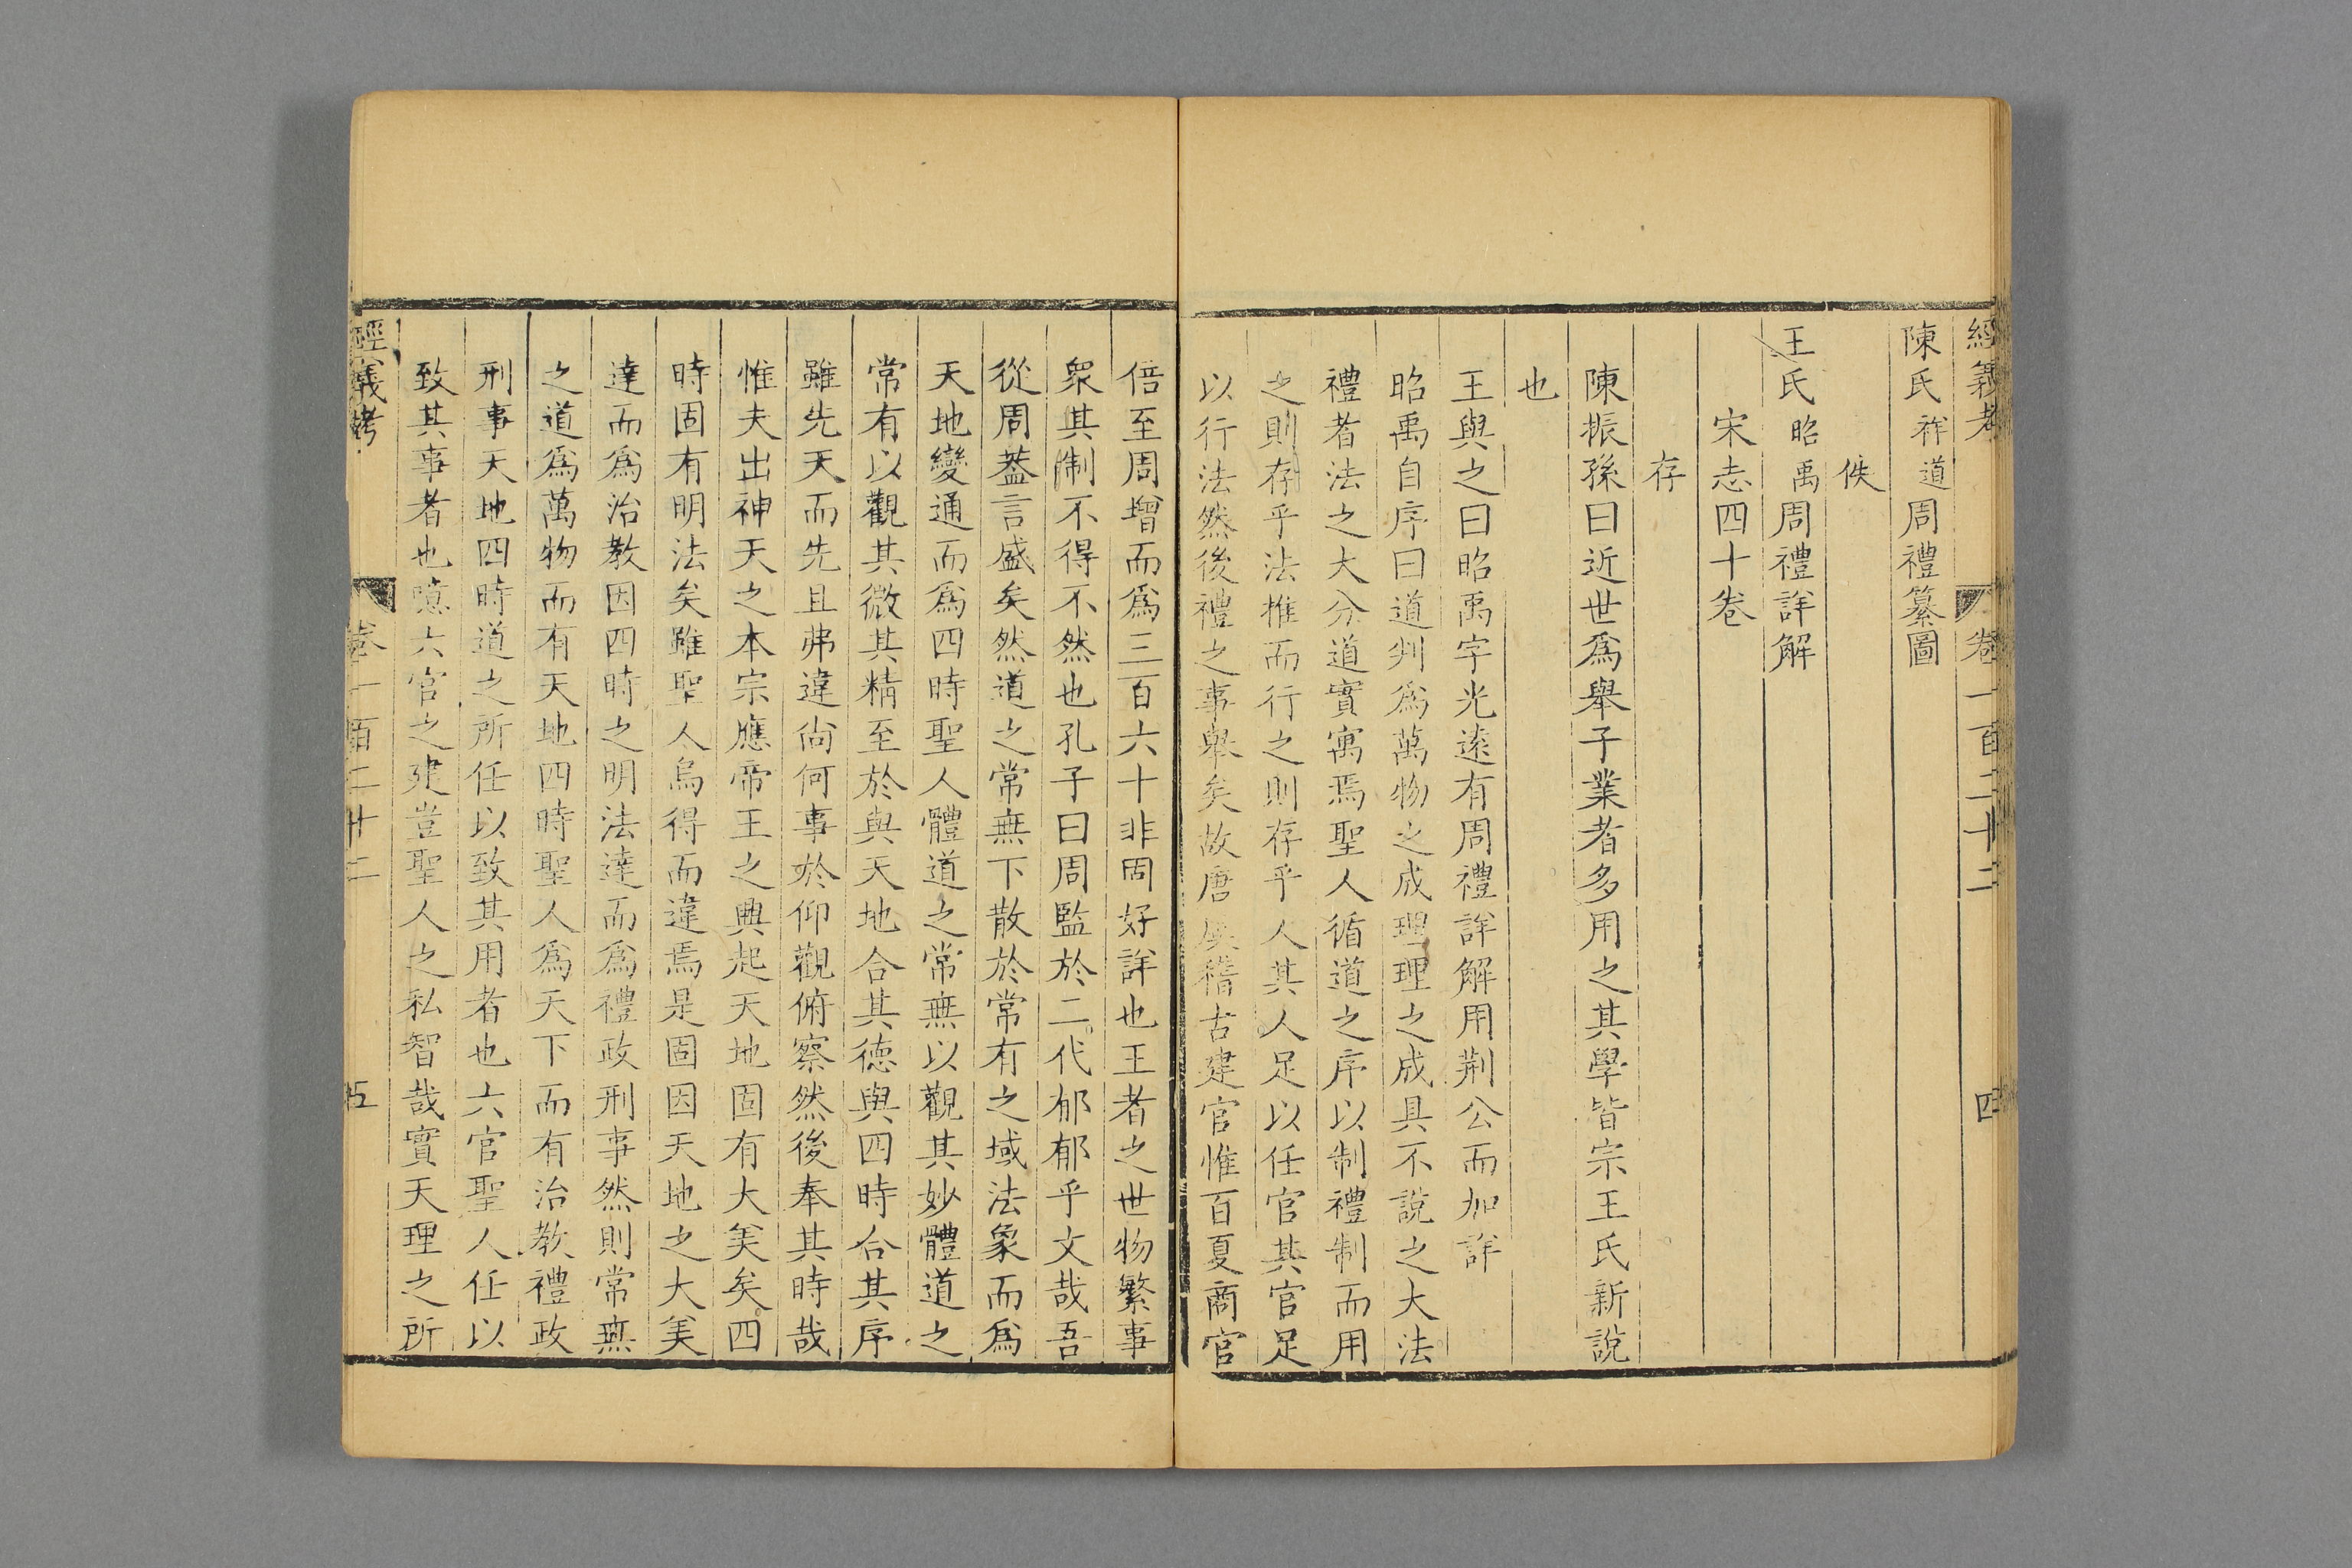 經義考 卷一百二十二 四
陳氏祥道周禮纂圖
佚
王氏昭禹周禮詳解
宋志四十卷
存
陳振孫曰近世爲舉子業者多用之其學皆宗王氏新說
也
王與之曰昭禹字光遠有周禮詳解用荆公而加詳
昭禹自序曰道判爲萬物之成理理之成具不說之大法
禮者法之大分道實寓焉聖人循道之序以制禮制而用
之則存乎法推而行之則存乎人其人足以任官其官足
以行法然後禮之事舉矣故唐虞稽古建官惟百夏商官
倍至周增而爲三百六十非固好詳也王者之世物繁事
衆其制不得不然也孔子曰周監於二代郁郁乎文哉吾
從周葢言盛矣然道之常無下散於常有之域法象而爲
天地變通而爲四時聖人體道之常無以觀其妙體道之
常有以觀其微其精至於與天地合其德與四時合其序
雖先天而先且弗違尙何事於仰觀俯察然後奉其時哉
惟夫出神天之本宗應帝王之興起天地固有大美矣四
時固有明法矣雖聖人烏得而違焉是固因天地之大美
達而爲治教因四時之明法達而爲禮政刑事然則常無
之道爲萬物而有天地四時聖人爲天下而有治教禮政
刑事天地四時道之所任以致其用者也六官聖人任以
致其事者也噫六官之建豈聖人之私智哉實天理之所
經義考 卷一百二十二 五